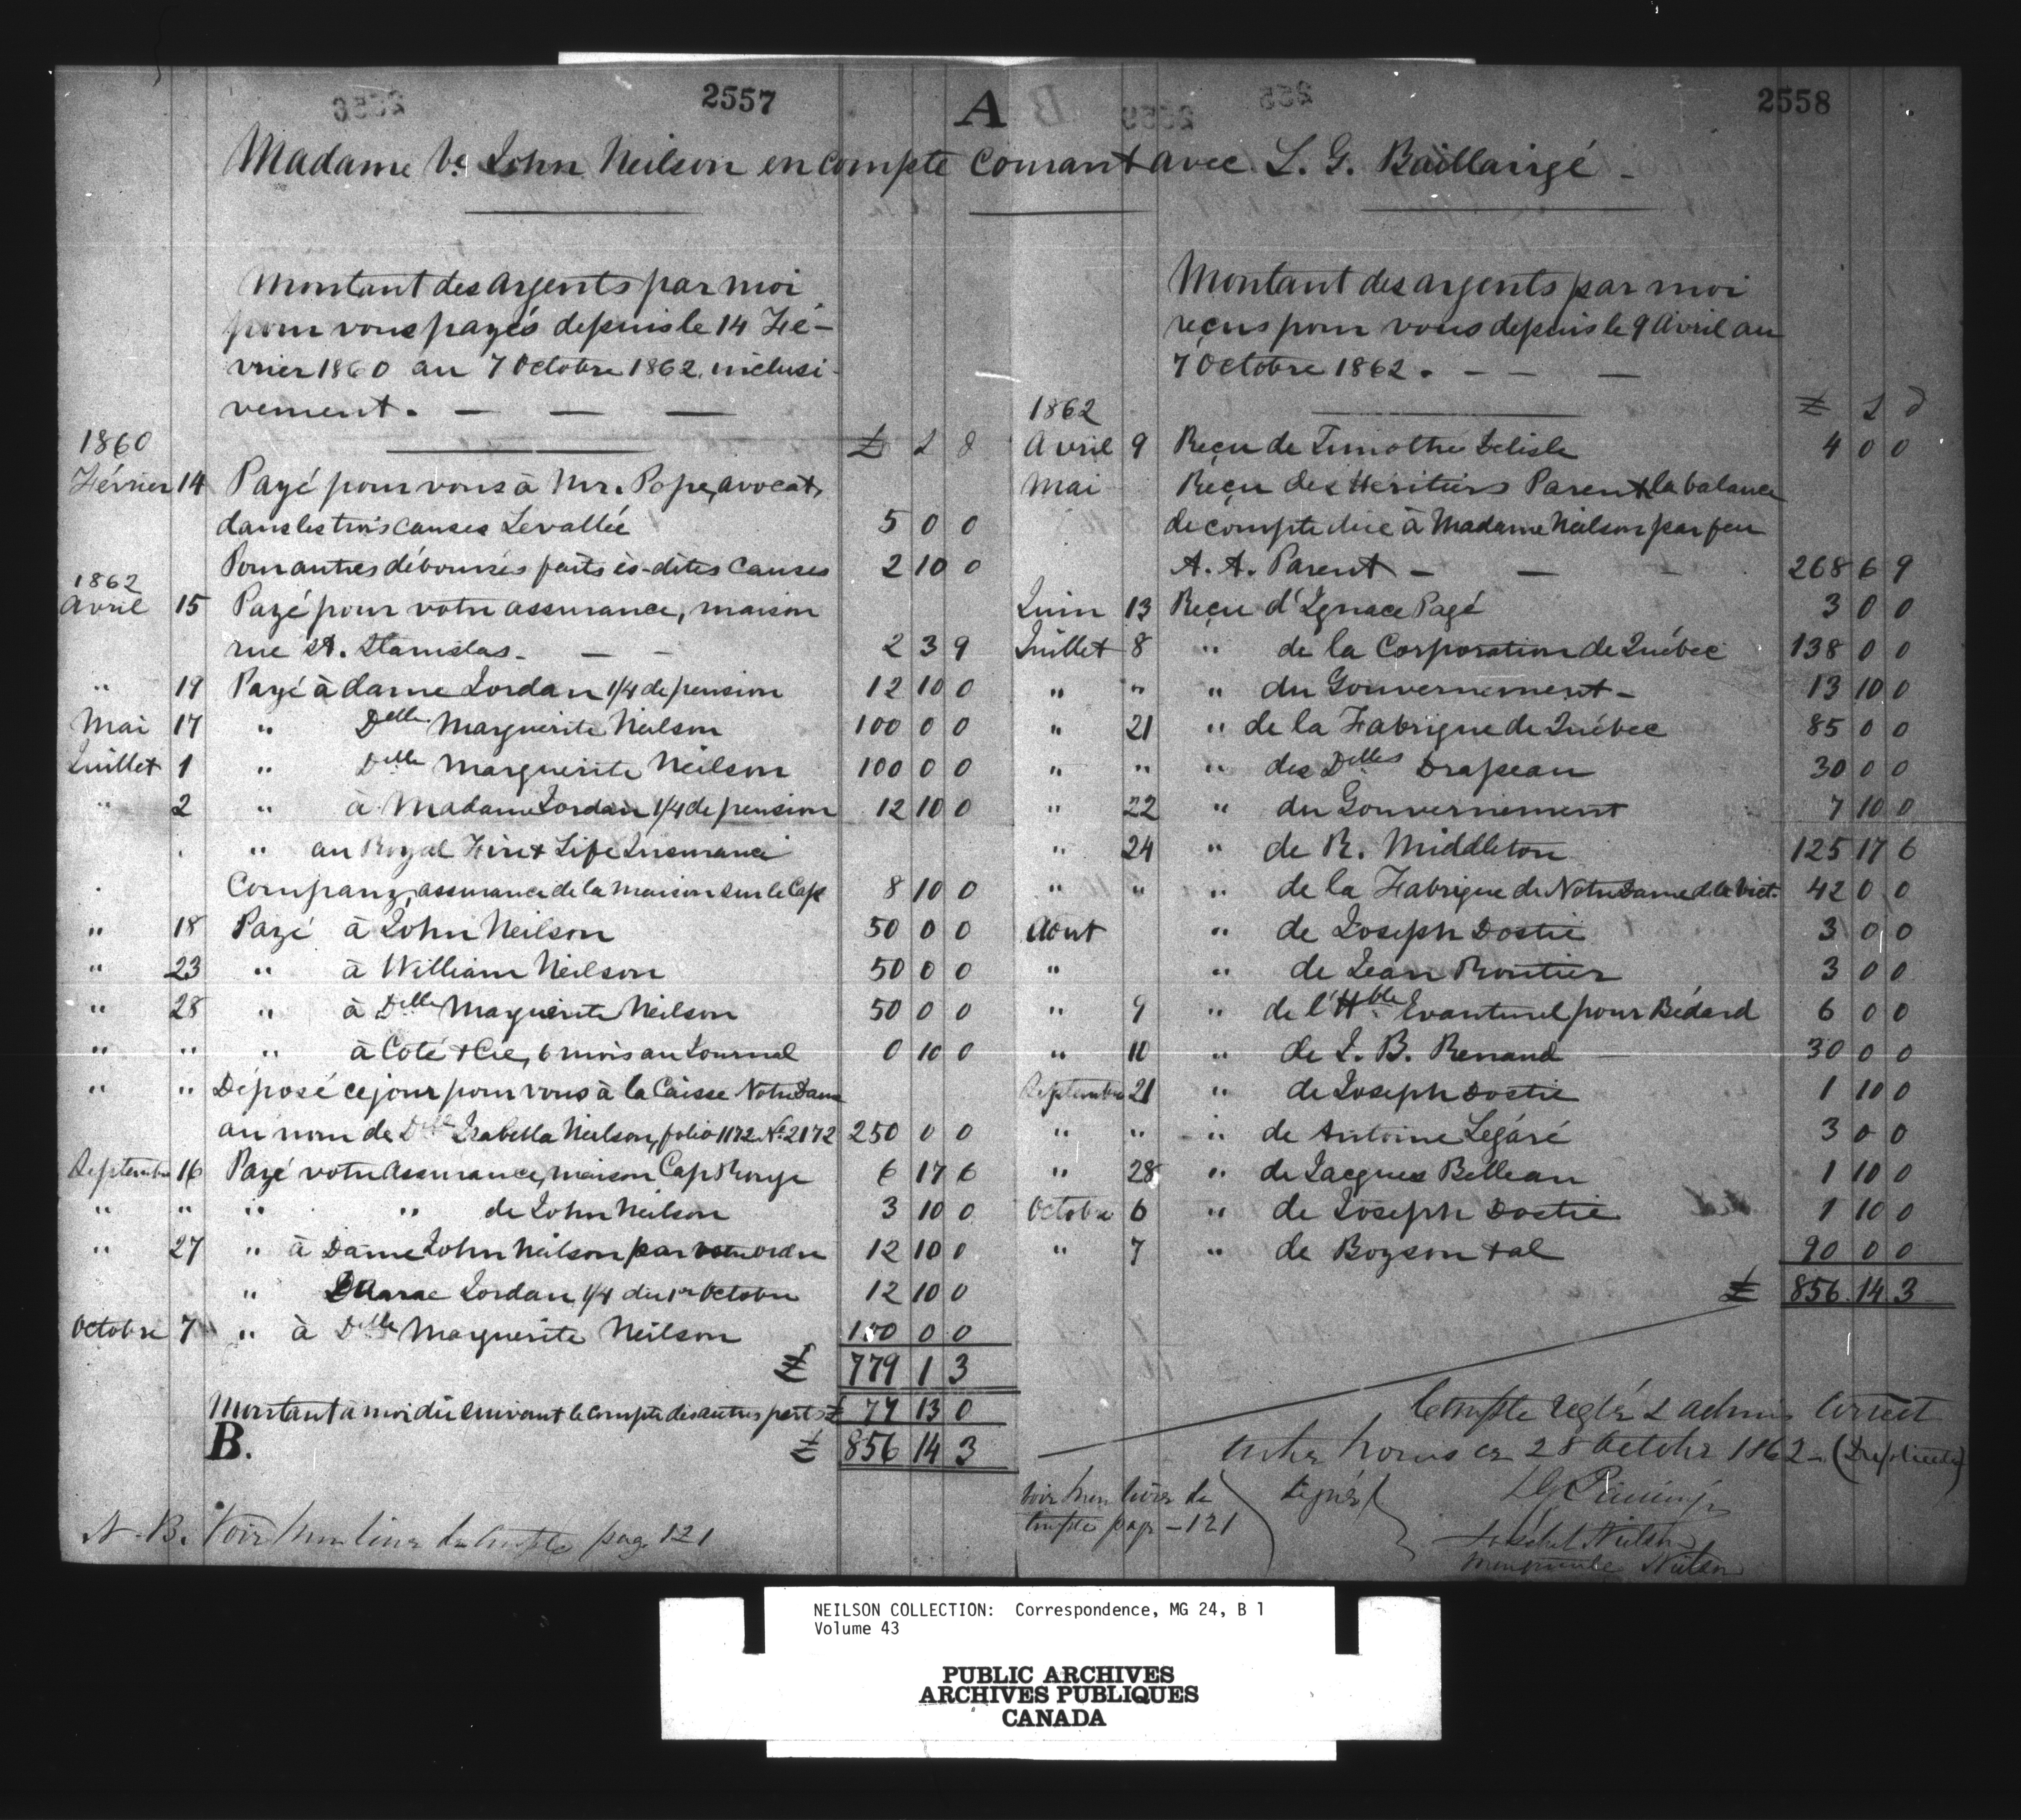 2557
A
2558
Madame Ve. John Neilson en compte courant avec L. G. Baillairgé -
Montant des argents par moi
pour vous payés depuis le 14 Fé-
vrier 1860 au 7 Octobre 1862 inclusi-
vement. — — —
1860 £ s d
Février 14 Payé pour vous à Mr. Pope, avocat,
dans les trois causes Levallée 5 0 0
Pour autres déboursés faits ès-dites causes 2 10 0
1862
Avril 15 Payé pour votre assurance, maison
rue St. Stanislas. — — 2 3 9
" 19 Payé à dame Jordan 1/4 de pension 12 10 0
Mai 17 " Delle Marguerite Neilson 100 0 0
Juillet 1 " Delle Marguerite Neilson 100 0 0
" 2 " à Madame Jordan 1/4 de pension 12 10 0
" au Royal Fire & Life Insurance
Company, assurance de la maison sur le Cap 8 10 0
" 18 Payé à John Neilson 50 0 0
" 23 " à William Neilson 50 0 0
" 28 " à Delle Marguerite Neilson 50 0 0
" " " à Coté & Cie, 6 mois au Journal 0 10 0
" " Déposé ce jour pour vous à la Caisse Notre Dame
au nom de Delle Isabella Neilson, folio 1172 No. 2172 250 0 0
Septembre 16 Payé votre assurance, maison Cap Rouge 6 17 6
" " " " de John Neilson 3 10 0
" 27 " à Dame John Neilson par votre ordre 12 10 0
" Dame Jordan 1/4 du 1er Octobre 12 10 0
Octobre 7 " à Delle Marguerite Neilson 100 0 0
£ 779 1 3
Montant à moi dû suivant le compte des autres parts £ 77 13 0
B. £ 856 14 3
N. B. Voir mon livre de compte page 121
Montant des argents par moi
reçus pour vous depuis le 9 Avril au
7 Octobre 1862. — — —
1862 £ s d
Avril 9 Reçu de Timothé Delisle 4 0 0
Mai Reçu des Héritiers Parent la balance
de compte due à Madame Neilson par feu
A. A. Parent — — 268 6 9
Juin 13 Reçu d'Ignace Pagé 3 0 0
Juillet 8 " de la Corporation de Québec 138 0 0
" " " du Gouvernement - 13 10 0
" 21 " de la Fabrique de Québec 85 0 0
" " " des Delles Drapeau 30 0 0
" 22 " du Gouvernement 7 10 0
" 24 " de R. Middleton 125 17 6
" " " de la Fabrique de Notre Dame de la Vict. 42 0 0
Aout " de Joseph Dostie 3 0 0
" " de Jean Routier 3 0 0
" 9 " de l'Hble Evanturel pour Bédard 6 0 0
" 10 " de J. B. Renaud 30 0 0
Septembre 21 " de Joseph Dostie 1 10 0
" " " de Antoine Légaré 3 0 0
" 28 " de Jacques Belleau 1 10 0
Octobre 6 " de Joseph Dostie 1 10 0
" 7 " de Boyson & al 90 0 0
£ 856 14 3
Compte réglé & admis correct
entre nous ce 28 Octobre 1862 - (Duplicata)
Voir mon livre de
compte page - 121
Signés
Isabel Neilson
Marguerite Neilson
NEILSON COLLECTION: Correspondence, MG 24, B 1
Volume 43
PUBLIC ARCHIVES
ARCHIVES PUBLIQUES
CANADA